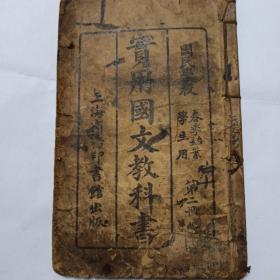 國民學校
春季始業
學生用
第二冊
實用國文教科書
上海商務印書館出版